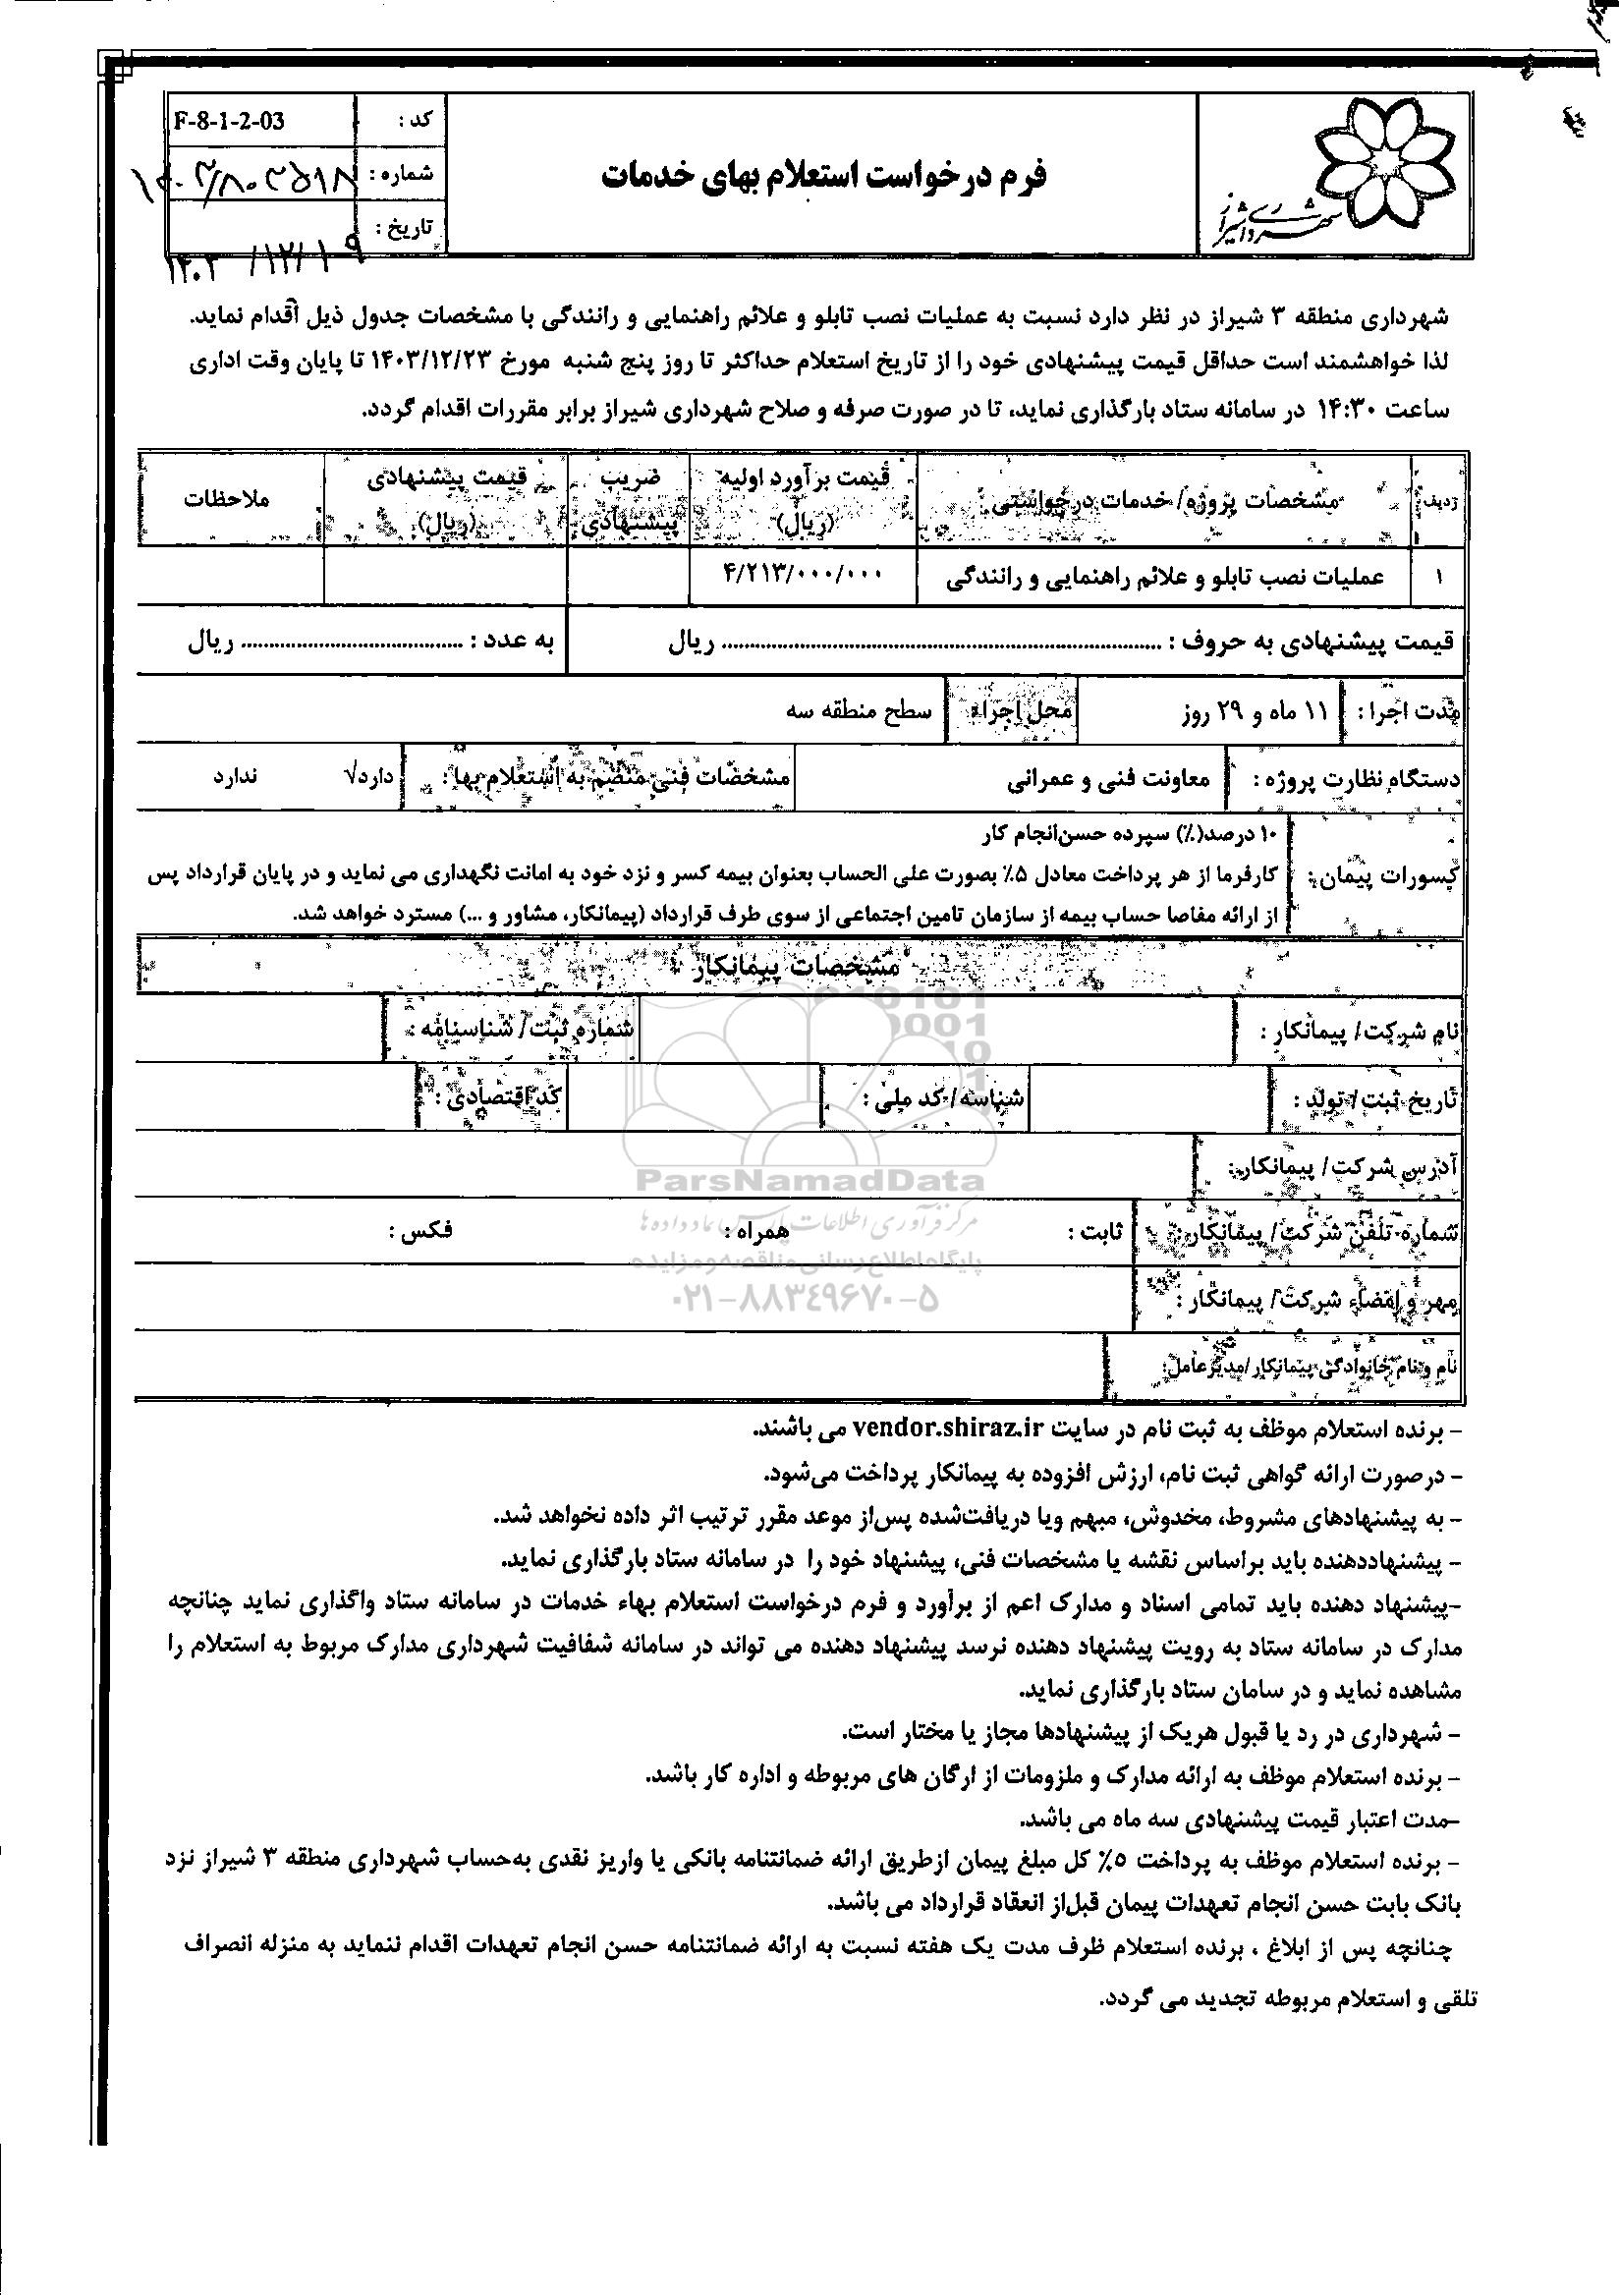 شهرداری شیراز
فرم درخواست استعلام بهای خدمات
کد : F-8-1-2-03
شماره :
تاریخ : ۱۴۰۳/۱۲/۰۹
شهرداری منطقه ۳ شیراز در نظر دارد نسبت به عملیات نصب تابلو و علائم راهنمایی و رانندگی با مشخصات جدول ذیل اقدام نماید.
لذا خواهشمند است حداقل قیمت پیشنهادی خود را از تاریخ استعلام حداکثر تا روز پنج شنبه مورخ ۱۴۰۳/۱۲/۲۳ تا پایان وقت اداری
ساعت ۱۴:۳۰ در سامانه ستاد بارگذاری نماید، تا در صورت صرفه و صلاح شهرداری شیراز برابر مقررات اقدام گردد.
ردیف مشخصات پروژه/ خدمات درخواستی قیمت برآورد اولیه (ریال) ضریب پیشنهادی قیمت پیشنهادی (ریال) ملاحظات
۱ عملیات نصب تابلو و علائم راهنمایی و رانندگی ۴/۲۱۳/۰۰۰/۰۰۰
قیمت پیشنهادی به حروف : ........................................ ریال به عدد : ........................................ ریال
مدت اجرا : ۱۱ ماه و ۲۹ روز محل اجرا: سطح منطقه سه
دستگاه نظارت پروژه : معاونت فنی و عمرانی مشخصات فنی منضم به استعلام بها : دارد√ ندارد
کسورات پیمان: ۱۰ درصد(٪) سپرده حسن‌انجام کار
کارفرما از هر پرداخت معادل ۵٪ بصورت علی الحساب بعنوان بیمه کسر و نزد خود به امانت نگهداری می نماید و در پایان قرارداد پس
از ارائه مفاصا حساب بیمه از سازمان تامین اجتماعی از سوی طرف قرارداد (پیمانکار، مشاور و ...) مسترد خواهد شد.
مشخصات پیمانکار
نام شرکت/ پیمانکار : شماره ثبت/ شناسنامه :
تاریخ ثبت/ تولد : شناسه/ کد ملی : کد اقتصادی :
آدرس شرکت/ پیمانکار:
شماره تلفن شرکت/ پیمانکار : ثابت : همراه : فکس :
مهر و امضاء شرکت/ پیمانکار :
نام و نام خانوادگی پیمانکار/مدیرعامل:
ParsNamadData
مرکز فرآوری اطلاعات پارس نماد داده ها
پایگاه اطلاع رسانی مناقصه و مزایده
۰۲۱-۸۸۳۴۹۶۷۰-۵
- برنده استعلام موظف به ثبت نام در سایت vendor.shiraz.ir می باشند.
- درصورت ارائه گواهی ثبت نام، ارزش افزوده به پیمانکار پرداخت می‌شود.
- به پیشنهادهای مشروط، مخدوش، مبهم ویا دریافت‌شده پس‌از موعد مقرر ترتیب اثر داده نخواهد شد.
- پیشنهاددهنده باید براساس نقشه یا مشخصات فنی، پیشنهاد خود را در سامانه ستاد بارگذاری نماید.
-پیشنهاد دهنده باید تمامی اسناد و مدارک اعم از برآورد و فرم درخواست استعلام بهاء خدمات در سامانه ستاد واگذاری نماید چنانچه
مدارک در سامانه ستاد به رویت پیشنهاد دهنده نرسد پیشنهاد دهنده می تواند در سامانه شفافیت شهرداری مدارک مربوط به استعلام را
مشاهده نماید و در سامان ستاد بارگذاری نماید.
- شهرداری در رد یا قبول هریک از پیشنهادها مجاز یا مختار است.
- برنده استعلام موظف به ارائه مدارک و ملزومات از ارگان های مربوطه و اداره کار باشد.
-مدت اعتبار قیمت پیشنهادی سه ماه می باشد.
- برنده استعلام موظف به پرداخت ۵٪ کل مبلغ پیمان ازطریق ارائه ضمانتنامه بانکی یا واریز نقدی به‌حساب شهرداری منطقه ۳ شیراز نزد
بانک بابت حسن انجام تعهدات پیمان قبل‌از انعقاد قرارداد می باشد.
چنانچه پس از ابلاغ ، برنده استعلام ظرف مدت یک هفته نسبت به ارائه ضمانتنامه حسن انجام تعهدات اقدام ننماید به منزله انصراف
تلقی و استعلام مربوطه تجدید می گردد.